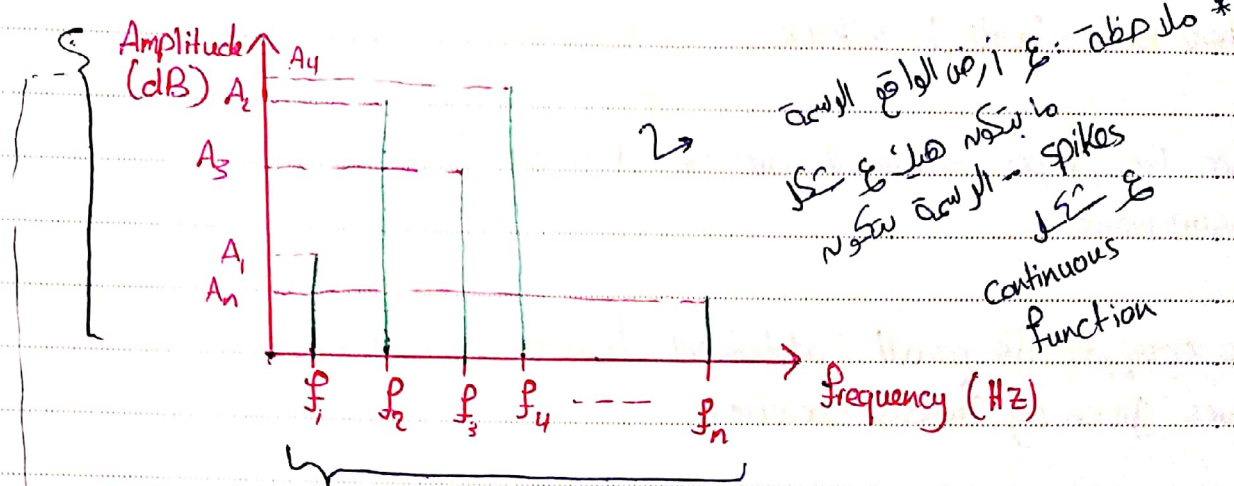 Amplitude
(dB)
A4
A2
A3
A1
An
f1 f2 f3 f4 ---- fn
frequency (Hz)
* ملاحظة : ع أرض الواقع الرسمة
ما بتكون هيك ع شكل
spikes -- الرسمة بتكون
ع شكل
continuous
function